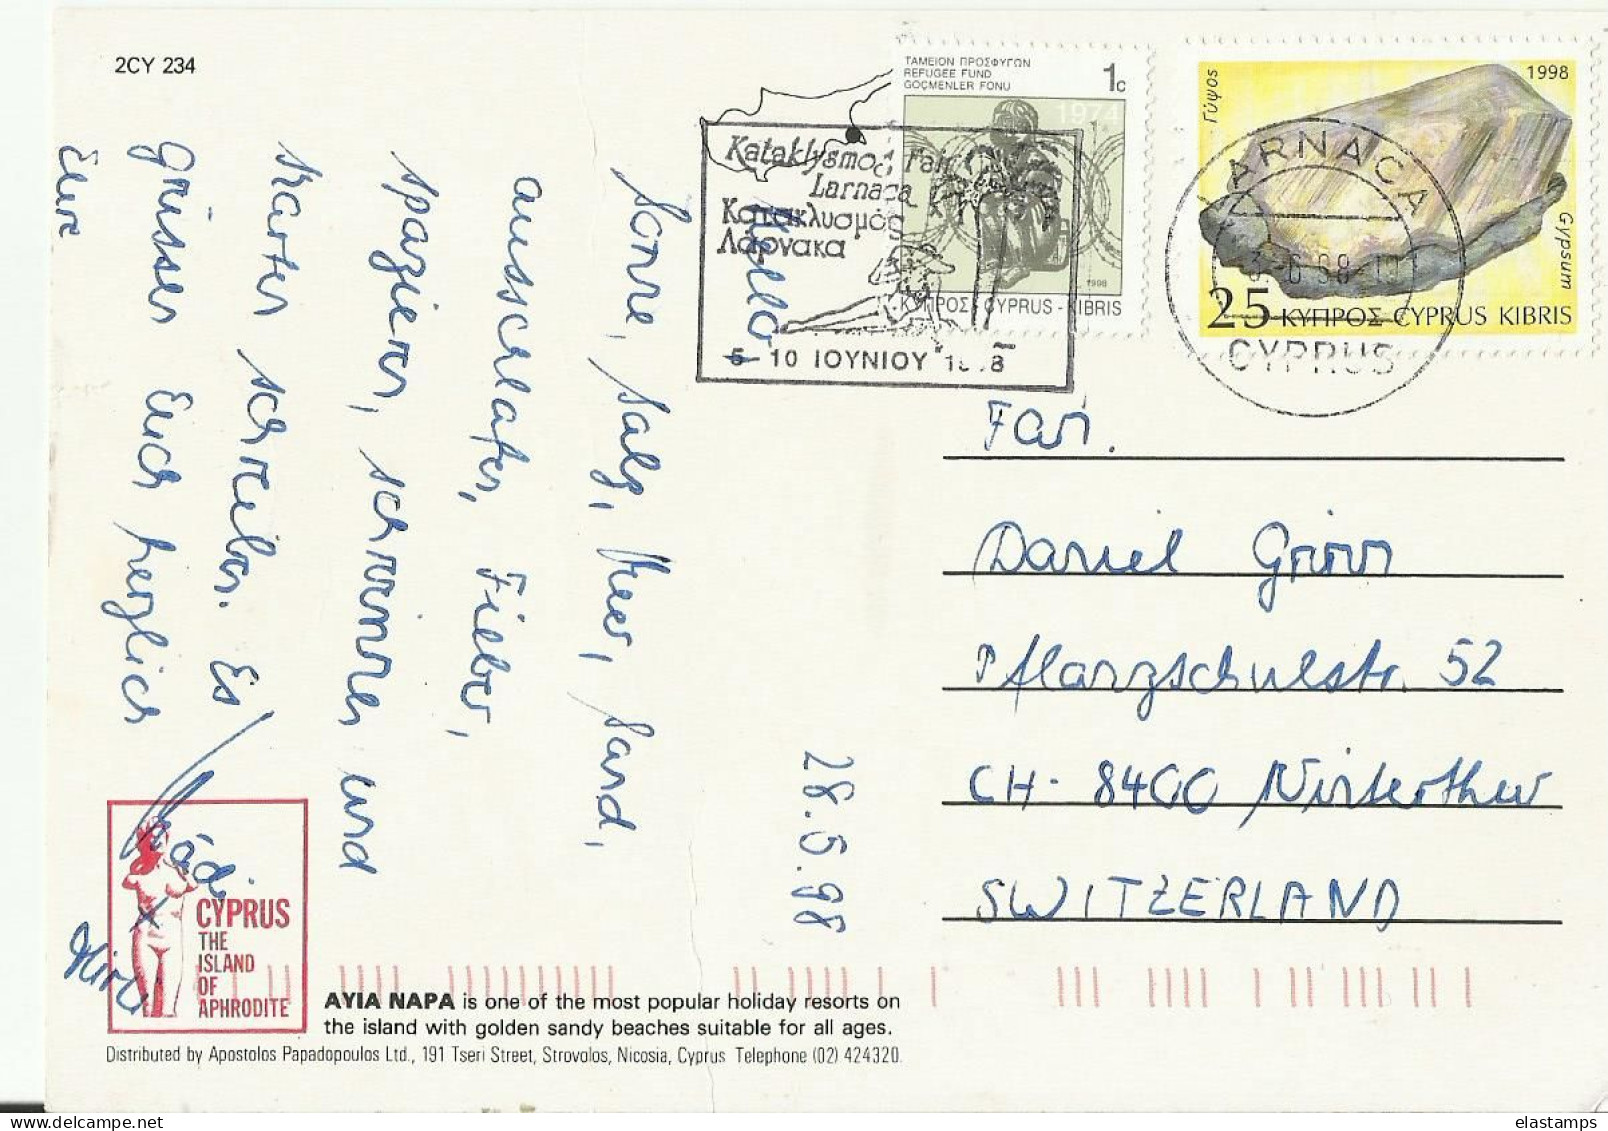 2CY 234
ΤΑΜΕΙΟΝ ΠΡΟΣΦΥΓΩΝ
REFUGEE FUND
GOÇMENLER FONU
1c
1974
1998
ΚΥΠΡΟΣ - CYPRUS - KIBRIS
1998
Γύψος
Gypsum
25 ΚΥΠΡΟΣ CYPRUS KIBRIS
Kataklysmos Fair
Larnaca
Κατακλυσμός
Λάρνακα
5 - 10 ΙΟΥΝΙΟΥ 1998
LARNACA
CYPRUS
28.5.98
Hello,
Sonne, Salz, Meer, Sand,
ausschlafen, Fieber,
spazieren, schwimmen und
Karten schreiben. Es
grüssen Euch herzlich
Eure
Fam.
Daniel
Pflanzschulstr. 52
CH-8400 Winterthur
SWITZERLAND
CYPRUS
THE
ISLAND
OF
APHRODITE
AYIA NAPA is one of the most popular holiday resorts on
the island with golden sandy beaches suitable for all ages.
Distributed by Apostolos Papadopoulos Ltd., 191 Tseri Street, Strovolos, Nicosia, Cyprus Telephone (02) 424320.
elastamps